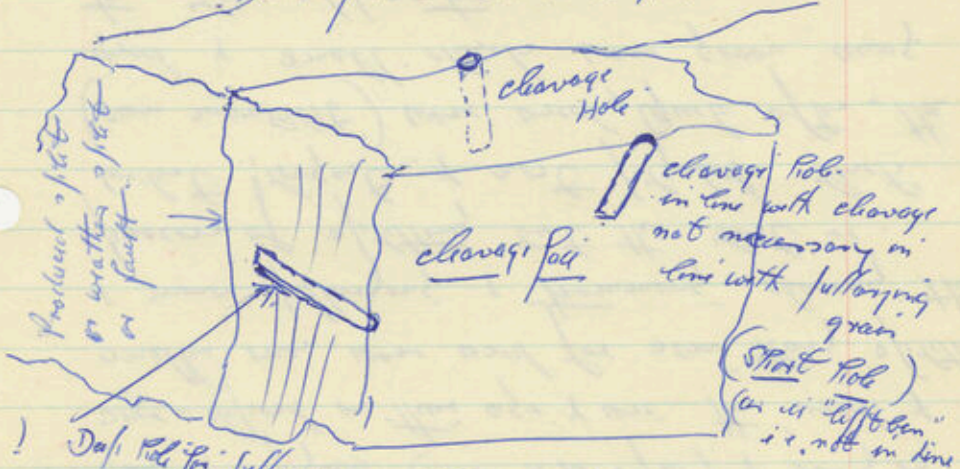 Produced split
or weather split
or fault.
cleavage
Hole
cleavage hole
in line with cleavage
not necessary in
line with pillaring
grain
(short hole)
(as in "lifters"
i.e. not in line
cleavage face
!
Deep hole for